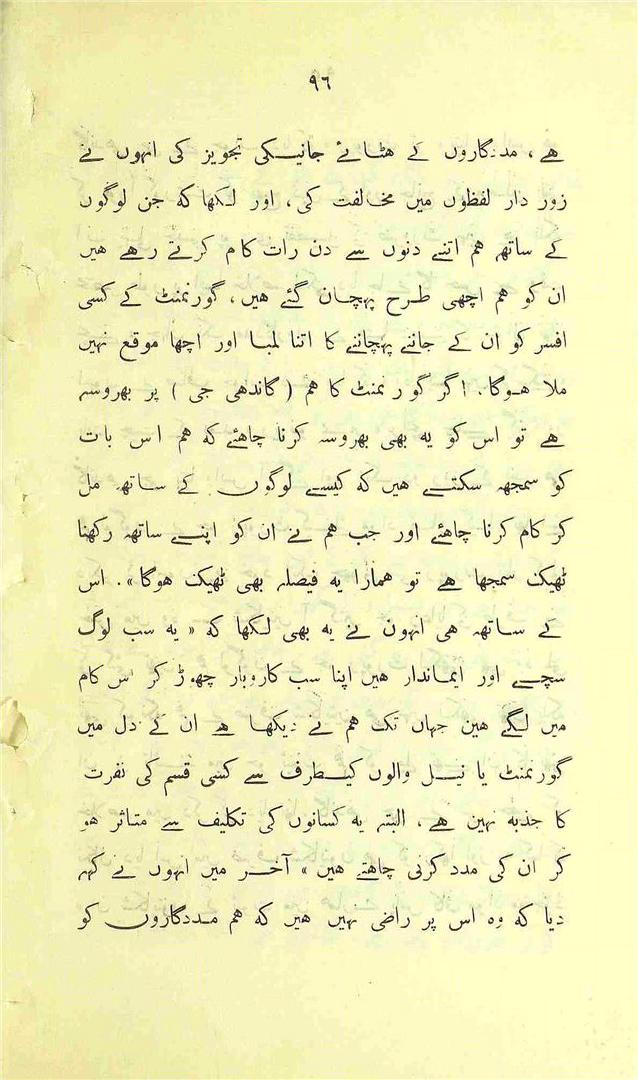 ۹٦
ہے، مددگاروں کے ہٹائے جانیکی تجویز کی انہوں نے
زور دار لفظوں میں مخالفت کی، اور لکھا کہ جن لوگوں
کے ساتھ ہم اتنے دنوں سے دن رات کام کرتے رہے ہیں
ان کو ہم اچھی طرح پہچان گئے ہیں، گورنمنٹ کے کسی
افسر کو ان کے جاننے پہچاننے کا اتنا لمبا اور اچھا موقع نہیں
ملا ہوگا. اگر گورنمنٹ کا ہم (گاندھی جی) پر بھروسہ
ہے تو اس کو یہ بھی بھروسہ کرنا چاہئے کہ ہم اس بات
کو سمجھہ سکتے ہیں کہ کیسے لوگوں کے ساتھہ مل
کر کام کرنا چاہئے اور جب ہم نے ان کو اپنے ساتھہ رکھنا
ٹھیک سمجھا ہے تو ہمارا یہ فیصلہ بھی ٹھیک ہوگا». اس
کے ساتھہ ہی انہون نے یہ بھی لکھا کہ « یہ سب لوگ
سچے اور ایماندار ہیں اپنا سب کاروبار چھوڑ کر اس کام
میں لگے ہین جہاں تک ہم نے دیکھا ہے ان کے دل میں
گورنمنٹ یا نیل والوں کیطرف سے کسی قسم کی نفرت
کا جذبہ نہین ہے، البتہ یہ کسانوں کی تکلیف سے متاثر ہو
کر ان کی مدد کرنی چاہتے ہیں » آخر میں انہوں نے کہہ
دیا کہ وہ اس پر راضی نہیں ہیں کہ ہم مددگاروں کو